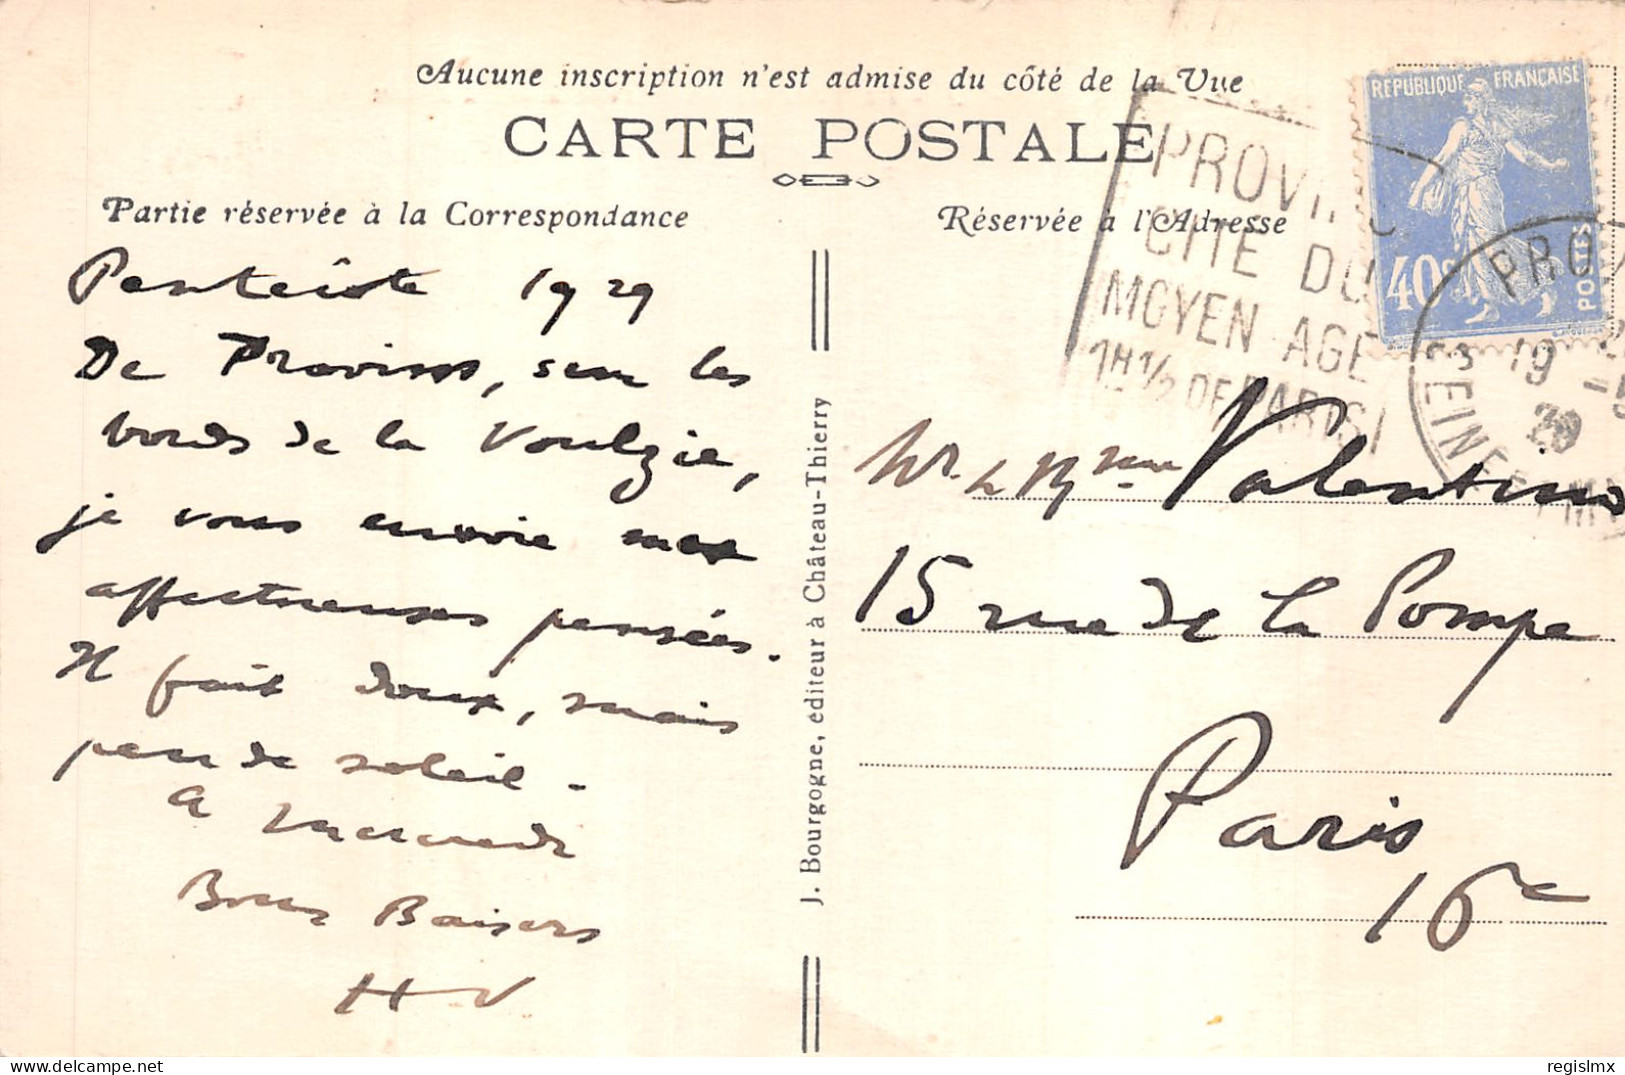 Aucune inscription n'est admise du côté de la Vue
CARTE POSTALE
Partie réservée à la Correspondance
Réservée à l'Adresse
Pentecôte 1929
De Provins, sur les
bords de la Voulzie,
je vous envoie mes
affectueuses pensées.
Il fait doux, mais
peu de soleil.
A mercredi
Bons Baisers
HV
J. Bourgogne, éditeur à Château-Thierry
REPUBLIQUE FRANÇAISE
40c
POSTES
PROVINS
CITE DU
MOYEN AGE
1H 1/2 DE PARIS
PROV
19 -5
29
SEINE ET M
Mr & Mme Valentino
15 rue de la Pompe
Paris
16e
regislmx